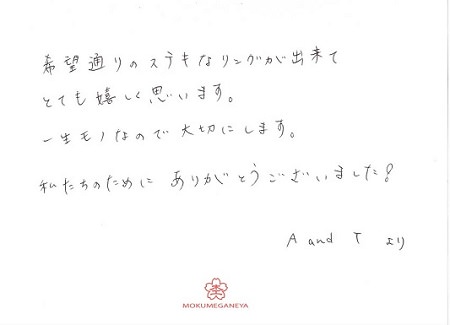 希望通りのステキなリングが出来て
とても嬉しく思います。
一生モノなので大切にします。
私たちのために ありがとうございました!
A and T より
MOKUMEGANEYA